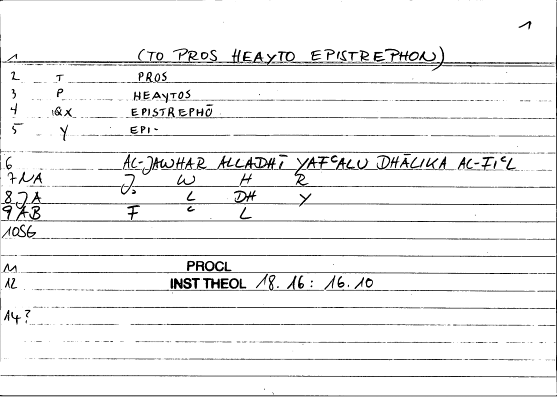 1
1 (TO PROS HEAYTO EPISTREPHON)
2 T PROS
3 P HEAYTOS
4 QX EPISTREPHŌ
5 Y EPI-
6 AL-JAWHAR ALLADHĪ YAFᶜALU DHĀLIKA AL-FIᶜL
7 NA J. W H R
8 JA L DH Y
9 AB F ᶜ L
10 SG
11 PROCL
12 INST THEOL 18.16 : 16.10
14?